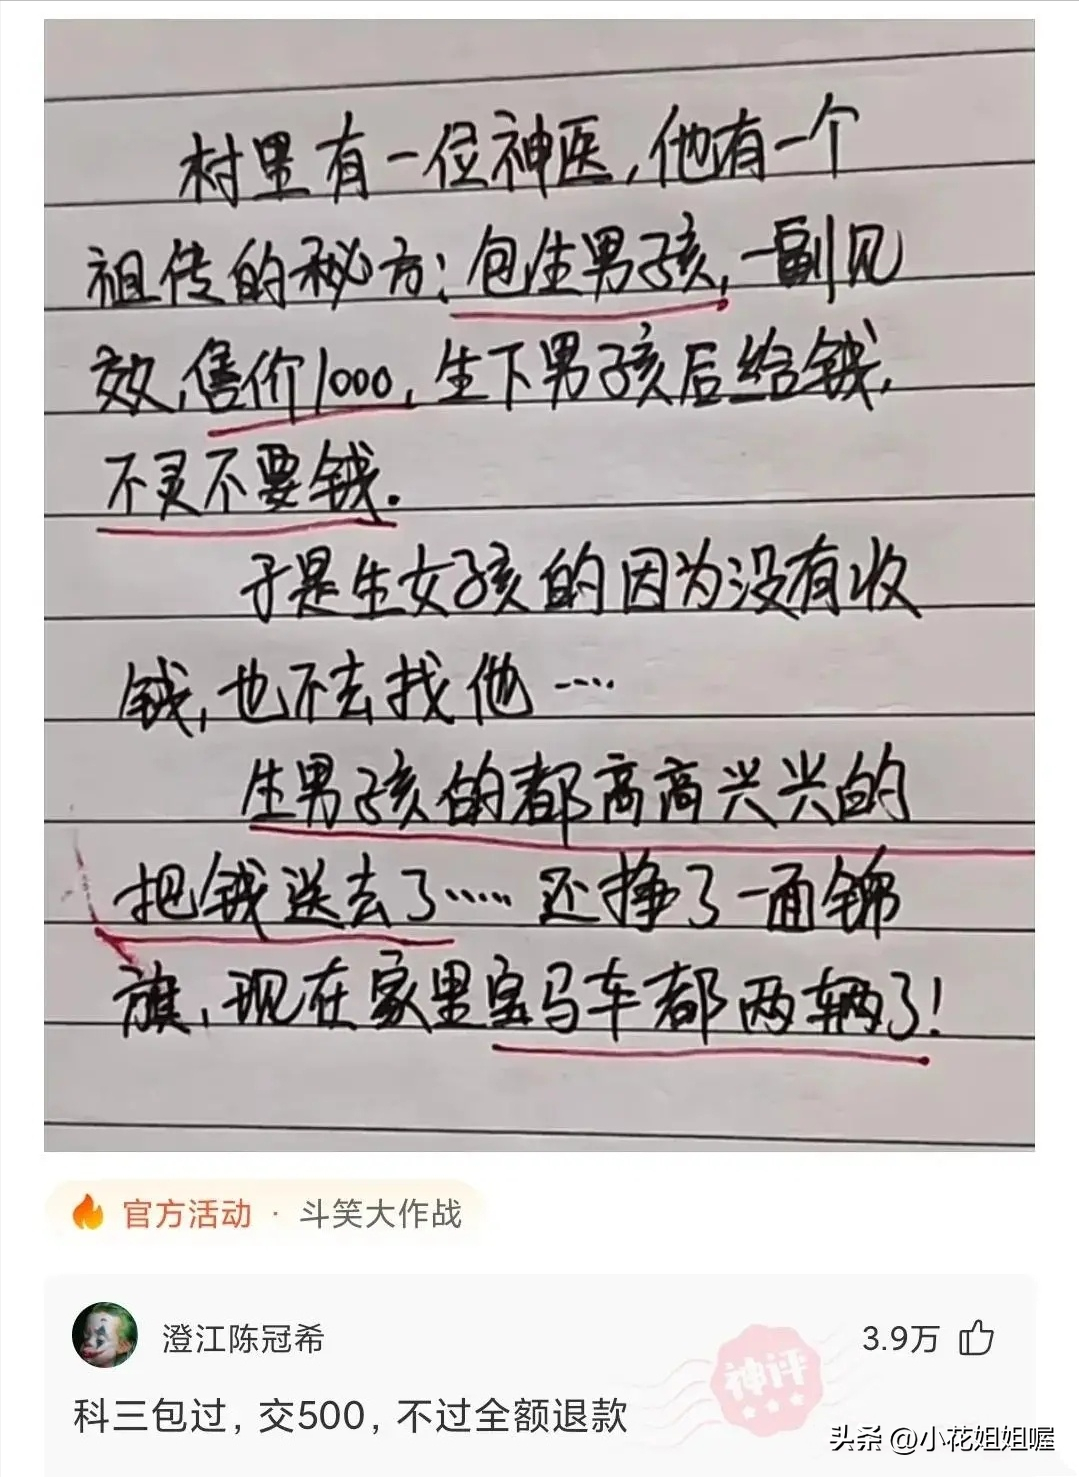 村里有一位神医,他有一个
祖传的秘方:包生男孩,一副见
效,售价1000,生下男孩后给钱,
不灵不要钱.
于是生女孩的因为没有收
钱,也不去找他……
生男孩的都高高兴兴的
把钱送去了……还挣了一面锦
旗,现在家里宝马车都两辆了!
官方活动 · 斗笑大作战
澄江陈冠希
3.9万
神评
科三包过,交500,不过全额退款
头条 @小花姐姐喔